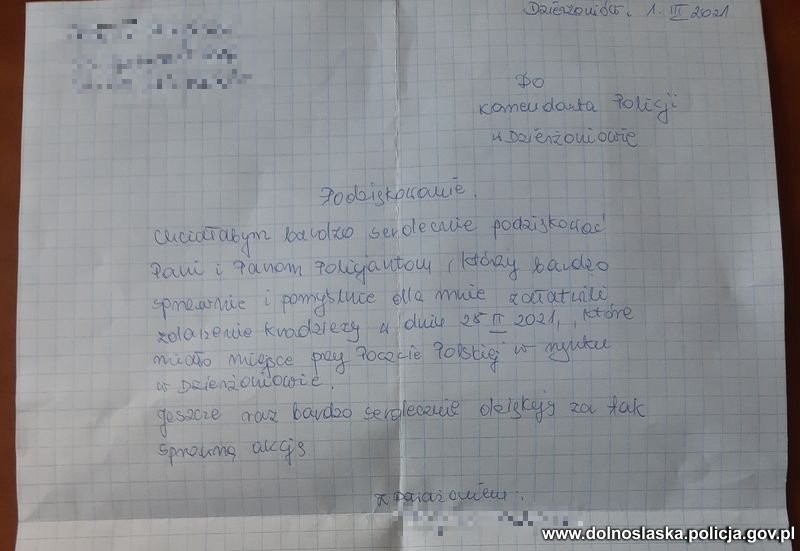 Dzierżoniów. 1. III 2021
Do
Komendanta Policji
w Dzierżoniowie
Podziękowanie.
Chciałabym bardzo serdecznie podziękować
Pani i Panom Policjantom, którzy bardzo
sprawnie i pomyślnie dla mnie załatwili
zdarzenie kradzieży w dniu 25 II 2021, które
miało miejsce przy Poczcie Polskiej w rynku
w Dzierżoniowie.
Jeszcze raz bardzo serdecznie dziękuję za tak
sprawną akcję
z poważaniem.
www.dolnoslaska.policja.gov.pl